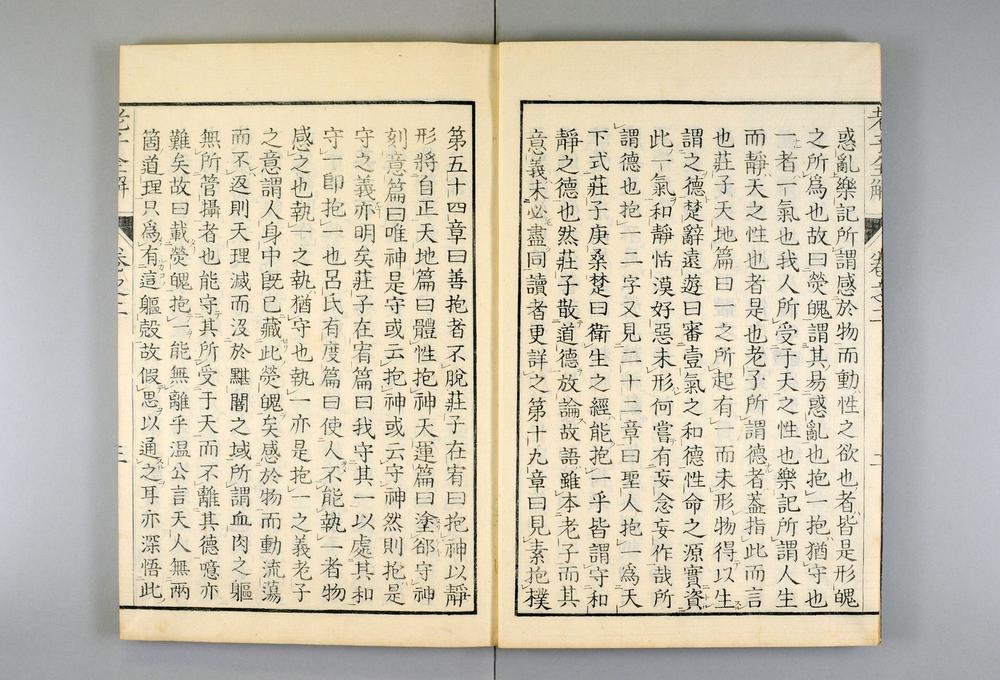 惑亂樂記所謂感於物而動性之欲也者皆是形魄
之所爲也故曰熒魄謂其易惑亂也抱一抱猶守也
一者一氣也我人所受于天之性也樂記所謂人生
而靜天之性也者是也老子所謂德者葢指此而言
也莊子天地篇曰一之所起有一而未形物得以生
謂之德楚辭遠遊曰審壹氣之和德性命之源實資
此一氣和靜恬漠好惡未形何嘗有妄念妄作哉所
謂德也抱一二字又見二十二章曰聖人抱一爲天
下式莊子庚桑楚曰衛生之經能抱一乎皆謂守和
靜之德也然莊子散道德放論故語雖本老子而其
意義未必盡同讀者更詳之第十九章曰見素抱樸
老子全解
卷之二
第五十四章曰善抱者不脫莊子在宥曰抱神以靜
形將自正天地篇曰體性抱神天運篇曰塗郤守神
刻意篇曰唯神是守或云抱神或云守神然則抱是
守之義亦明矣莊子在宥篇曰我守其一以處其和
守一卽抱一也呂氏有度篇曰使人不能執一者物
感之也執一之執猶守也執一亦是抱一之義老子
之意謂人身中旣已藏此熒魄矣感於物而動流蕩
而不返則天理滅而沒於黮闇之域所謂血肉之軀
無所管攝者也能守其所受于天而不離其德噫亦
難矣故曰載熒魄抱一能無離乎溫公言天人無兩
箇道理只爲有這軀殼故假思以通之耳亦深悟此
老子全解
卷之二